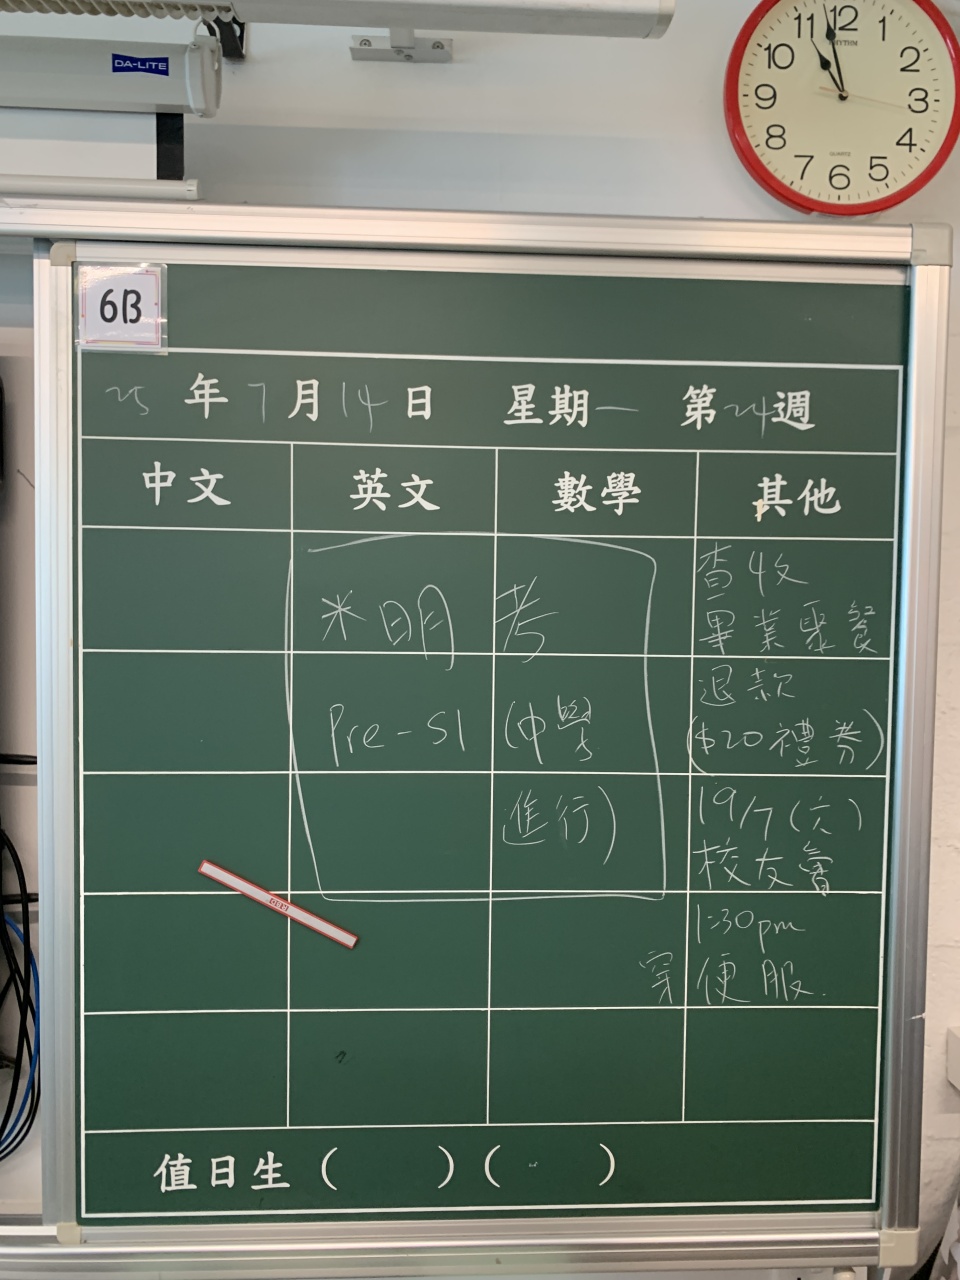 DA-LITE
11 12 1
10 2
9 3
8 4
7 6 5
RHYTHM
QUARTZ
6B
25年7月14日 星期一 第24週
中文 英文 數學 其他
*明考
Pre-S1 (中學
進行)
查收
畢業聚餐
退款
($20禮券)
19/7(六)
校友會
1:30pm
穿便服.
值日生 ( ) ( )